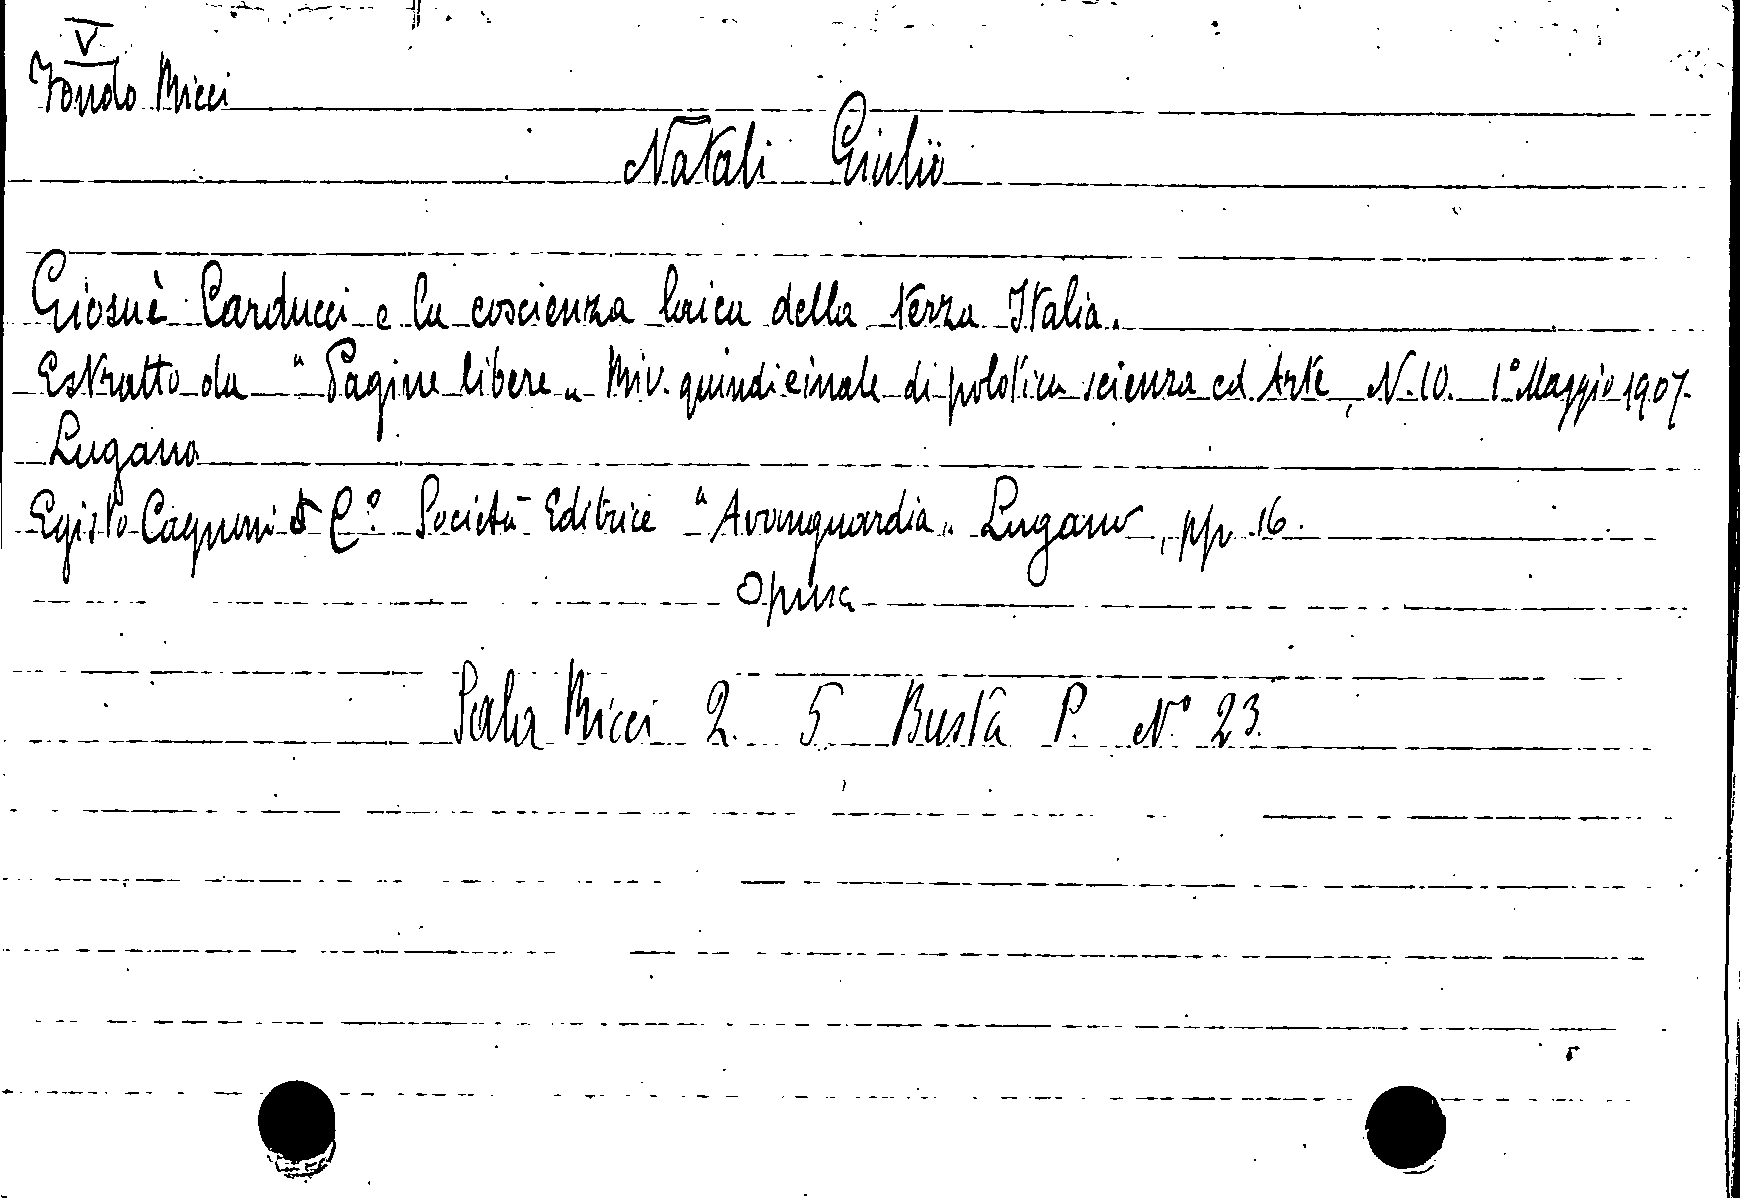 V
Fondo Ricci
Natali Giulio
Giosuè Carducci e la coscienza laica della terza Italia.
Estratto da "Pagine libere" Riv. quindicinale di politica scienza ed Arte, N. 10. 1° Maggio 1907.
Lugano
Egisto Cagnoni & C° Società Editrice "Avanguardia" Lugano, pp. 16.
Opusc
Sala Ricci 2. 5 Busta P. N° 23.